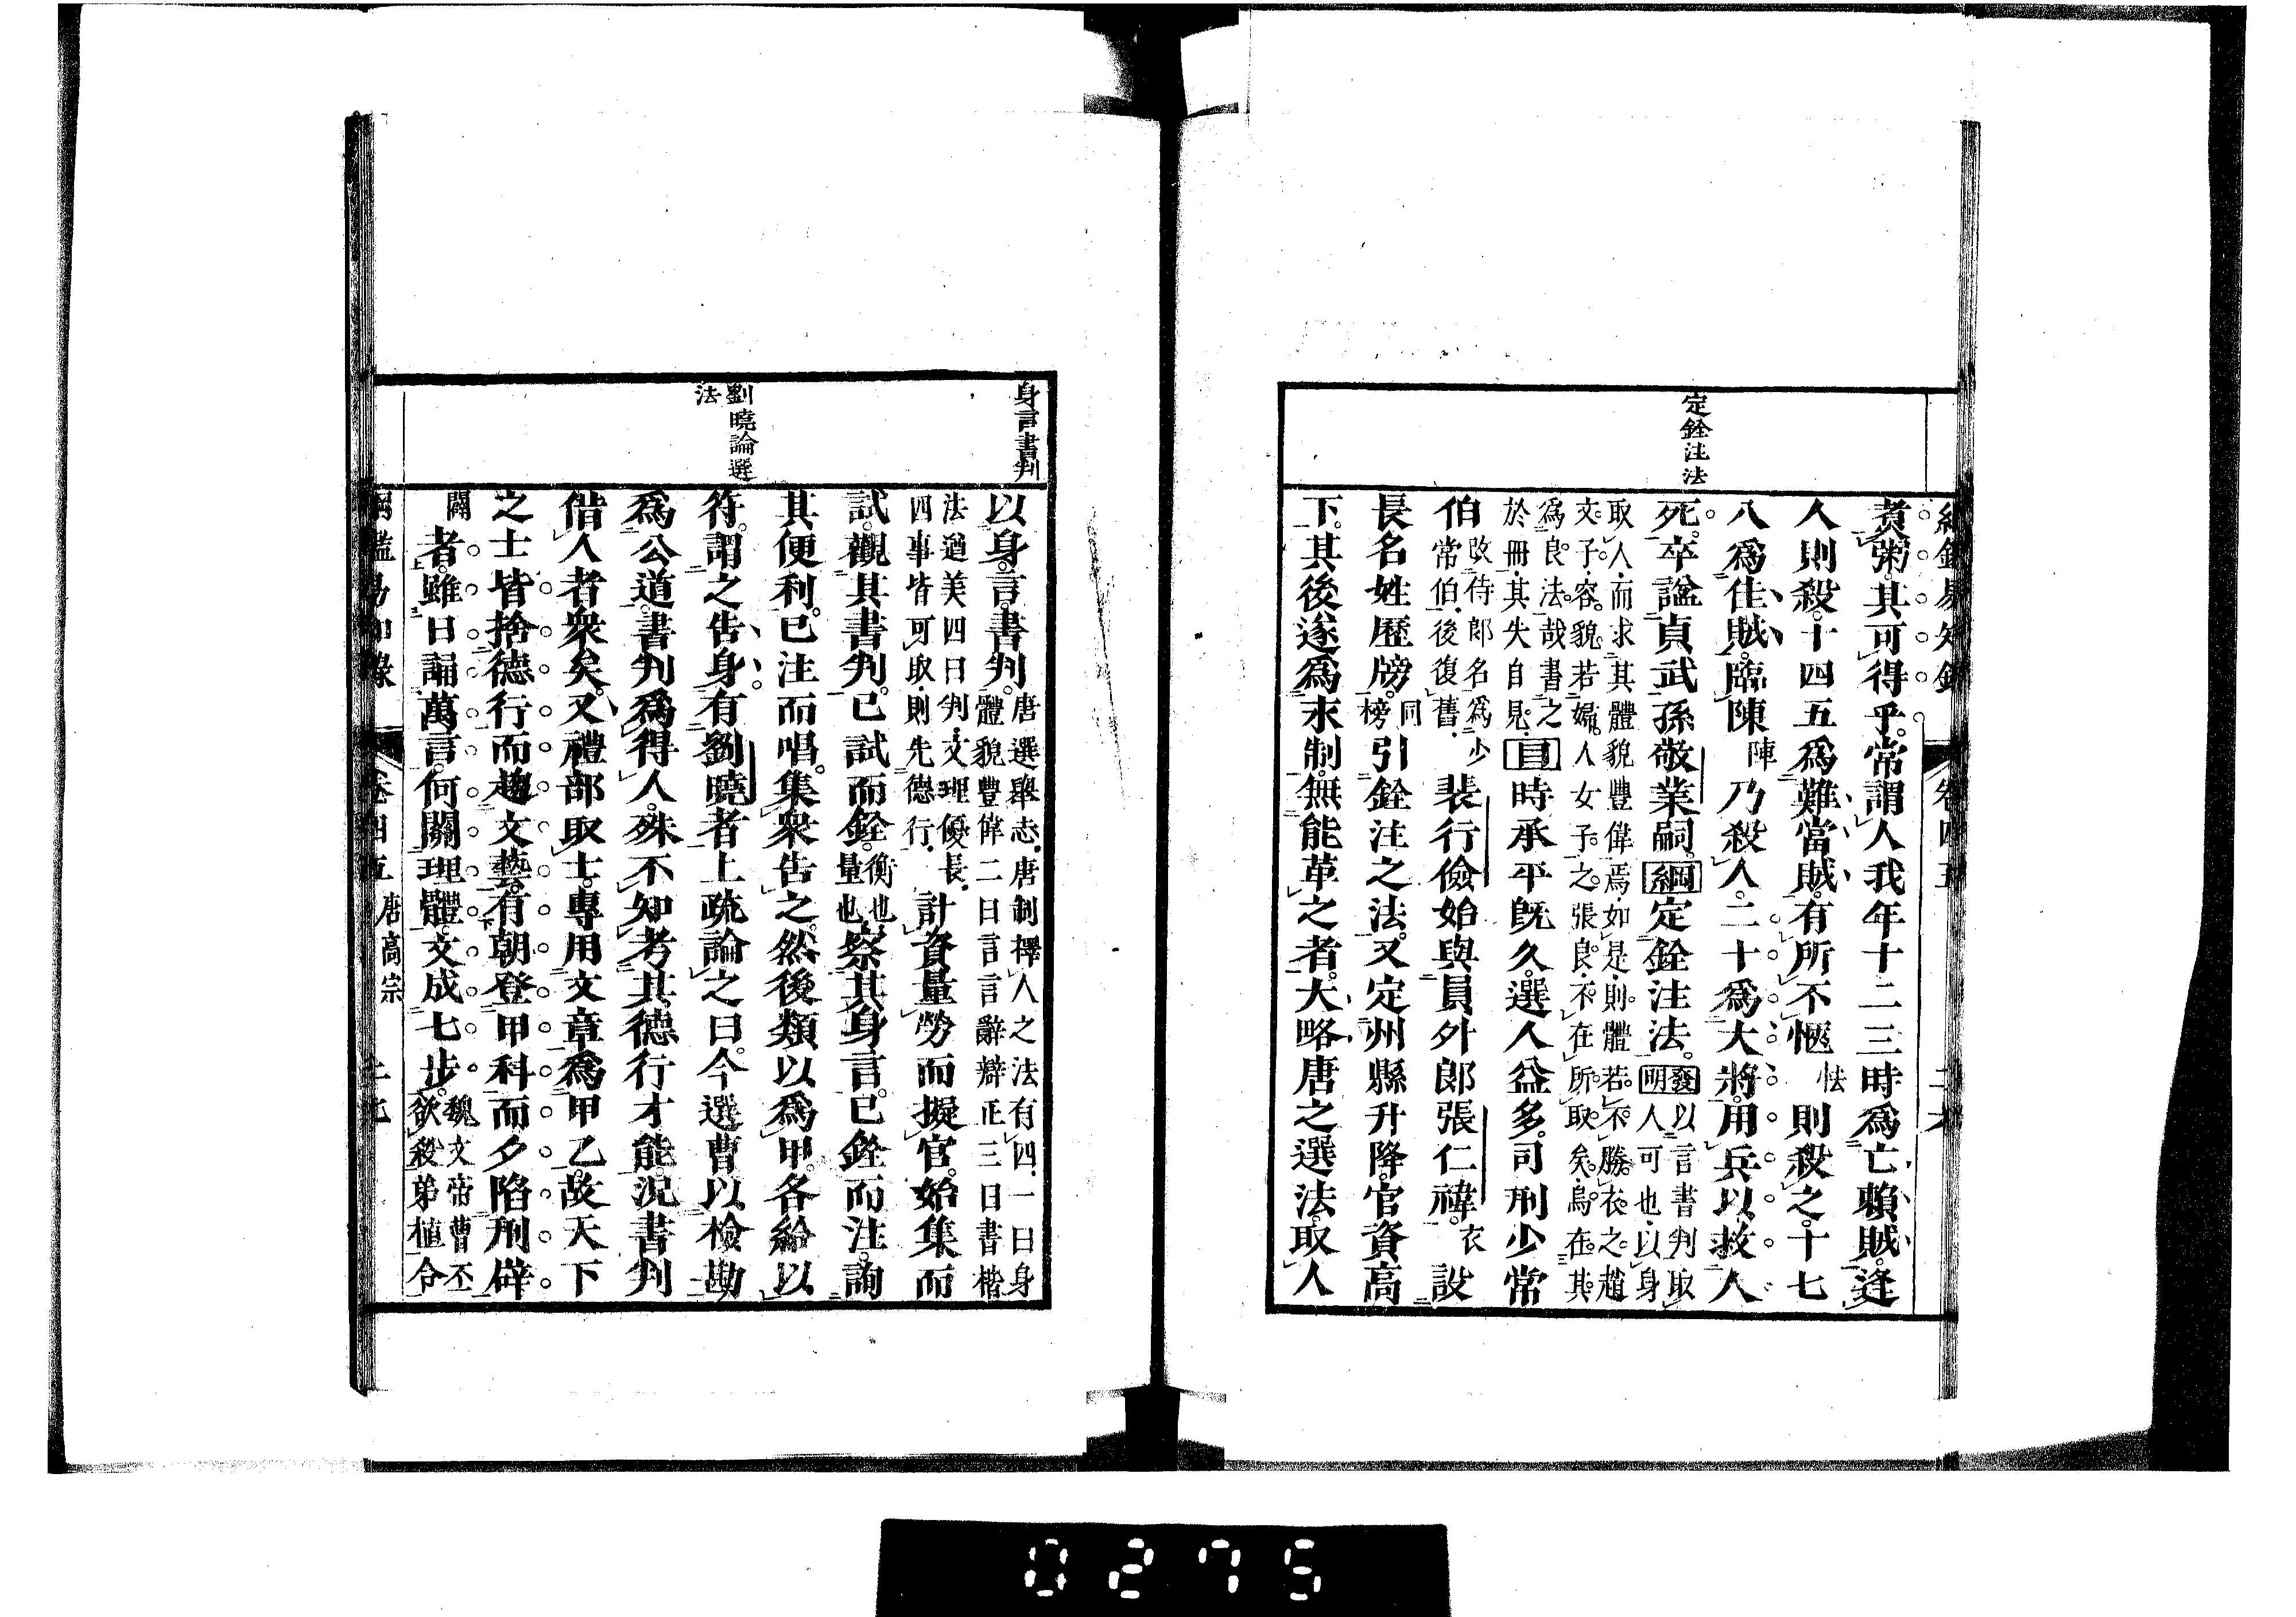 定銓注法
煑粥。其可得乎。常謂人。我年十二三時爲亡賴賊。逢
人則殺。十四五爲難當賊。有所不愜怯則殺之。十七
八爲佳賊。臨陳陣乃殺人。二十爲大將。用兵以救人
死。卒謚貞武。孫敬業嗣。綱定銓注法。發明以言書判取
人可也以身
取人而求其體貌豐偉焉如是則體若不勝衣之趙
文子容貌若婦人女子之張良不在所取矣烏在其
爲良法哉書之
於冊其失自見。目時承平旣久。選人益多。司刑少常
伯改侍郞名爲少
常伯後復舊裴行儉始與員外郞張仁禕。衣設
長名姓歷牓。同
榜引銓注之法。又定州縣升降。官資高
下。其後遂爲永制。無能革之者。大略唐之選法。取人
身言書判
以身。言。書。判。唐選舉志唐制擇人之法有四一曰身
體貌豐偉二曰言言辭辯正三曰書楷
法遒美四曰判文理優長
四事皆可取則先德行計資量勞而擬官。始集而
試。觀其書判。已試而銓。衡也
量也察其身言。已銓而注。詢
其便利。已注而唱。集衆告之。然後類以爲甲。各給以
符。謂之告身。有劉曉者上疏論之曰。今選曹以檢勘
劉曉論選
法
爲公道。書判爲得人。殊不知考其德行才能。況書判
借人者衆矣。又禮部取士。專用文章爲甲乙。故天下
之士皆捨德行而趨文藝。有朝登甲科而夕陷刑辟
闢者。雖日誦萬言。何關理體。文成七步。魏文帝曹丕
欲殺弟植令
唐高宗